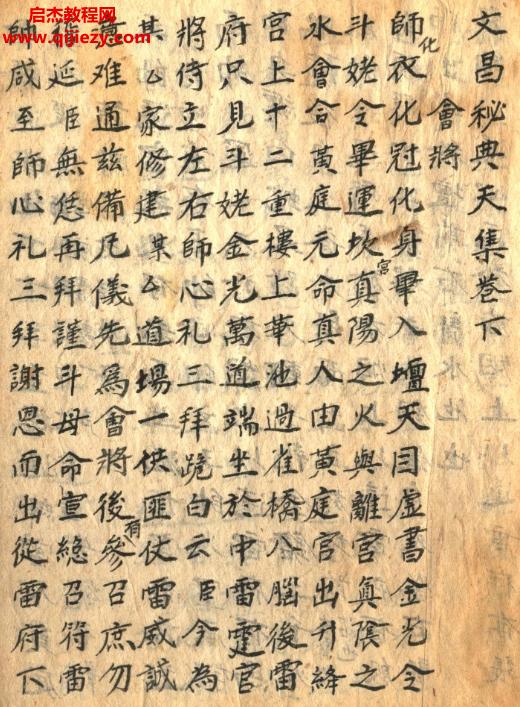 启杰教程网
www.qijiejy.com
文昌秘典天集卷下
會將
師衣化冠化身畢入壇天目虛書金光令
化
斗姥令畢運坎真陽之火與離宮真陰之
宮
水會合黃庭元命真人由黃庭宮出升絳
宮上十二重樓上華池過雀橋入腦後雷
府只見斗姥金光萬道端坐於中雷霆官
將侍立左右師心礼三拜跪白云臣今為
某厶家修建某厶道場一供匪仗雷威誠
難通兹備凡儀先為會將後參召庶勿
有
延臣無恁再拜謹斗母命宣總召符雷
師咸至師心礼三拜謝恩而出從雷府下